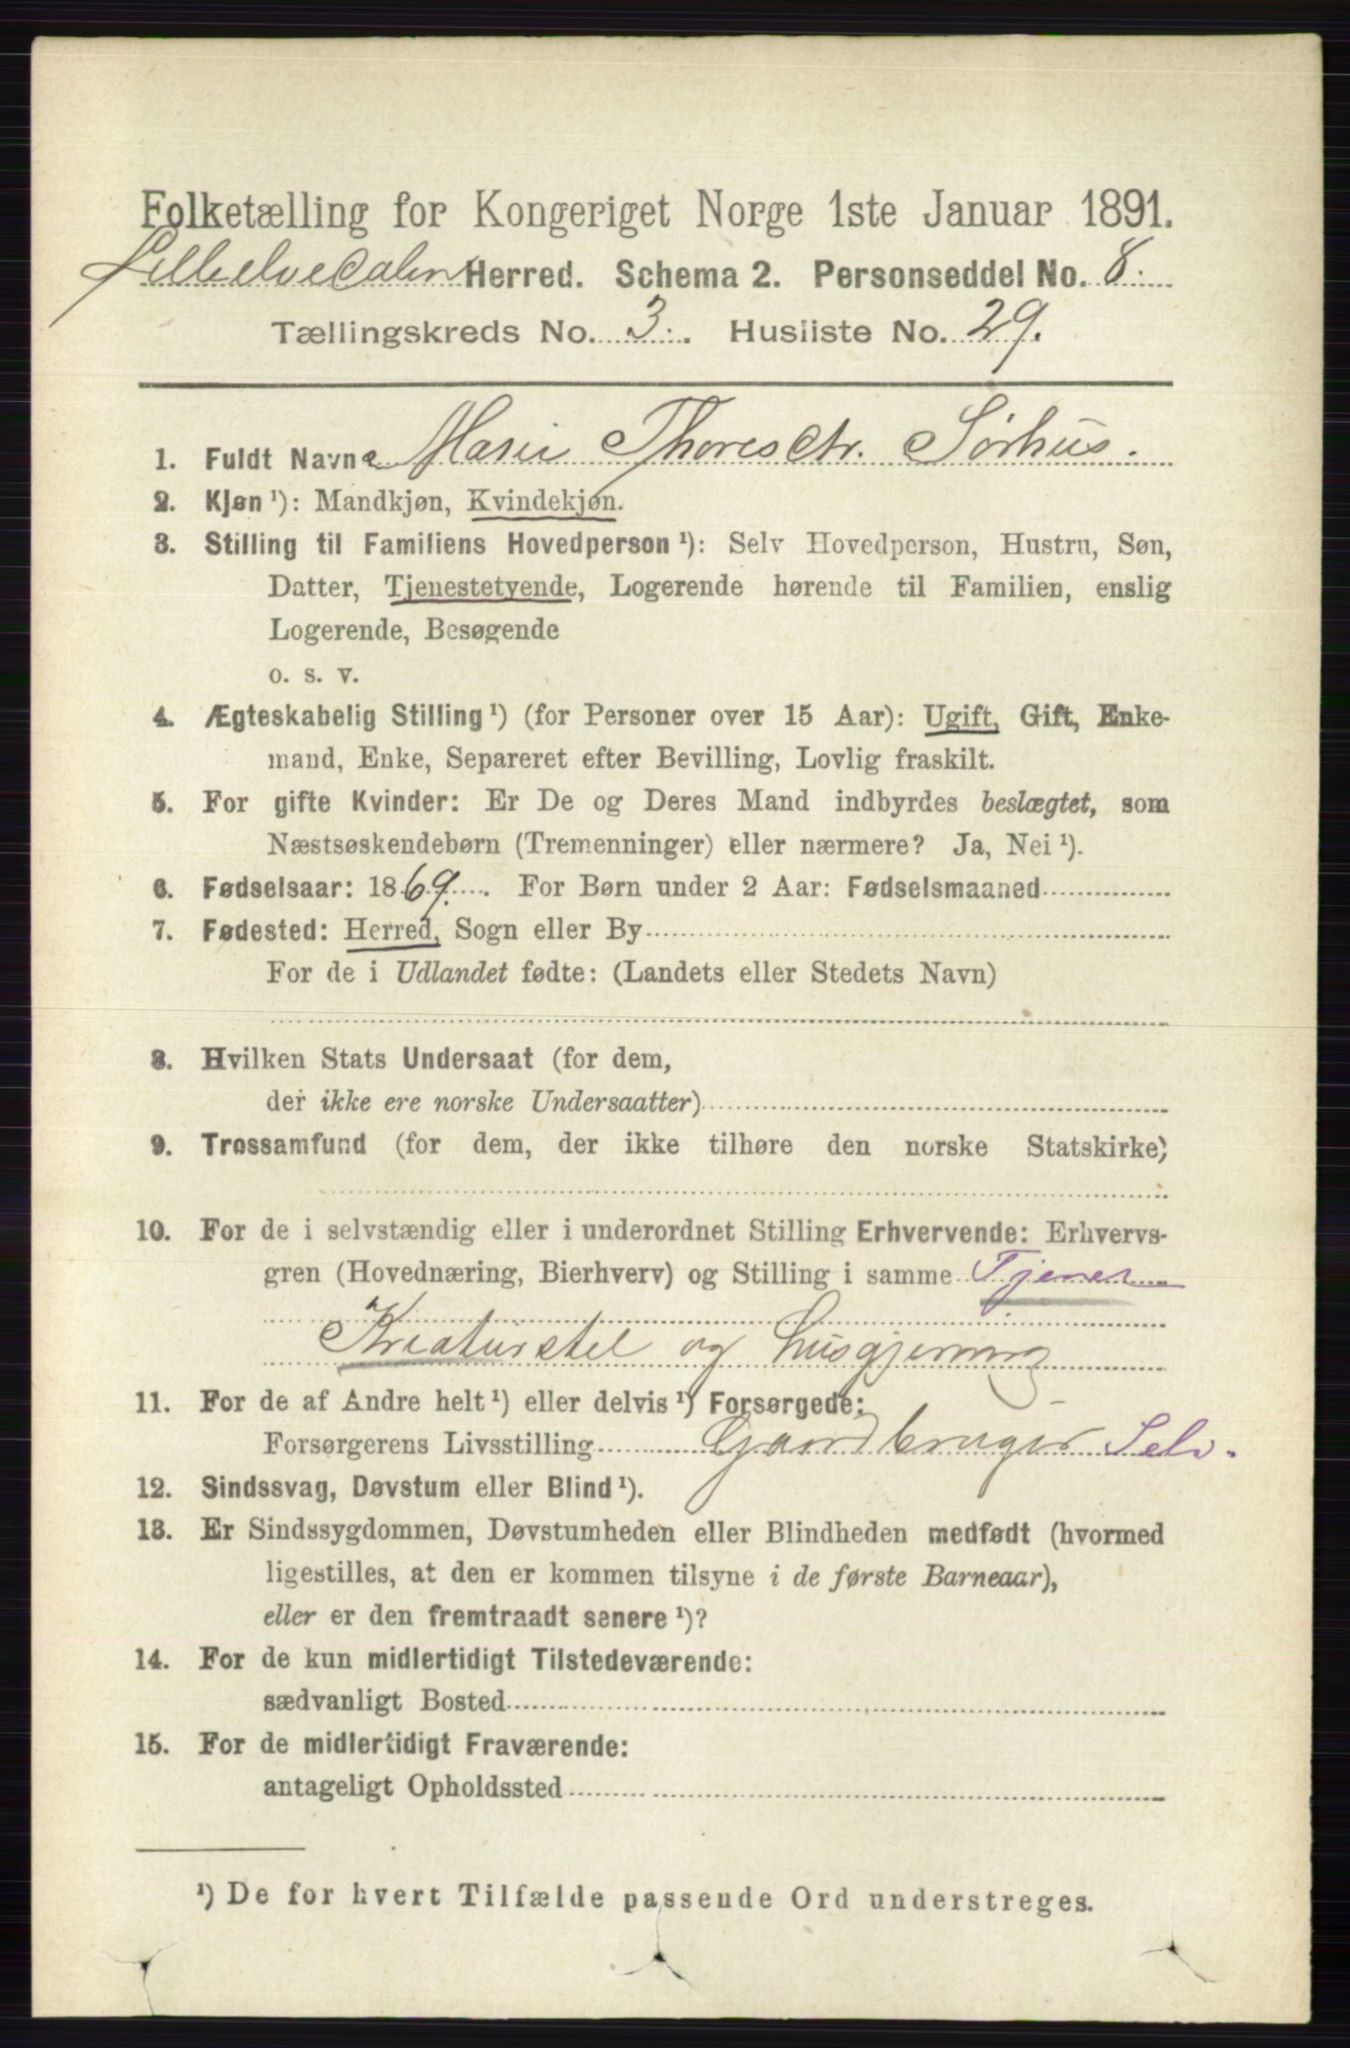 Folketælling for Kongeriget Norge 1ste Januar 1891.
Lilleelvedalen Herred. Schema 2. Personseddel No. 8.
Tællingskreds No. 3. Husliste No. 29.
1. Fuldt Navn Marie Thoresdtr. Sørhus.
2. Kjøn ¹): Mandkjøn, Kvindekjøn.
3. Stilling til Familiens Hovedperson ¹): Selv Hovedperson, Hustru, Søn,
Datter, Tjenestetyende, Logerende hørende til Familien, enslig
Logerende, Besøgende
o. s. v.
4. Ægteskabelig Stilling ¹) (for Personer over 15 Aar): Ugift, Gift, Enke-
mand, Enke, Separeret efter Bevilling, Lovlig fraskilt.
5. For gifte Kvinder: Er De og Deres Mand indbyrdes beslægtet, som
Næstsøskendebørn (Tremenninger) eller nærmere? Ja, Nei ¹).
6. Fødselsaar: 1869. For Børn under 2 Aar: Fødselsmaaned
7. Fødested: Herred, Sogn eller By
For de i Udlandet fødte: (Landets eller Stedets Navn)
8. Hvilken Stats Undersaat (for dem,
der ikke ere norske Undersaatter)
9. Trossamfund (for dem, der ikke tilhøre den norske Statskirke)
10. For de i selvstændig eller i underordnet Stilling Erhvervende: Erhvervs-
gren (Hovednæring, Bierhverv) og Stilling i samme Tjener
Kreaturstel og husgjerning
11. For de af Andre helt ¹) eller delvis ¹) Forsørgede:
Forsørgerens Livsstilling Gaardbruger Selv.
12. Sindssvag, Døvstum eller Blind ¹).
13. Er Sindssygdommen, Døvstumheden eller Blindheden medfødt (hvormed
ligestilles, at den er kommen tilsyne i de første Barneaar),
eller er den fremtraadt senere ¹)?
14. For de kun midlertidigt Tilstedeværende:
sædvanligt Bosted
15. For de midlertidigt Fraværende:
antageligt Opholdssted
¹) De for hvert Tilfælde passende Ord understreges.